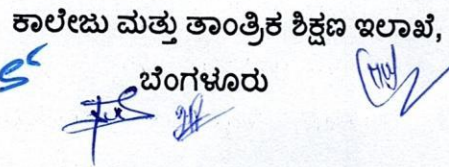 ಕಾಲೇಜು ಮತ್ತು ತಾಂತ್ರಿಕ ಶಿಕ್ಷಣ ಇಲಾಖೆ,
ಬೆಂಗಳೂರು